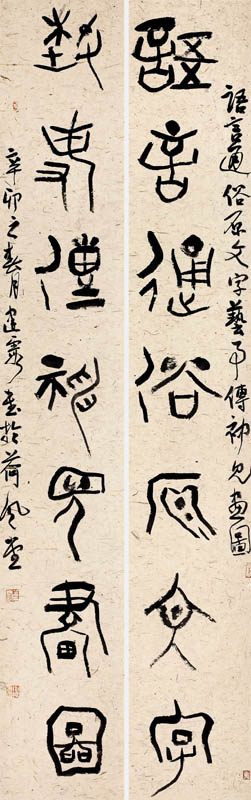 語言通俗原文字藝事傳神見畫圖
語言通俗原文字
藝事傳神見畫圖
辛卯之春月建書於荷風堂